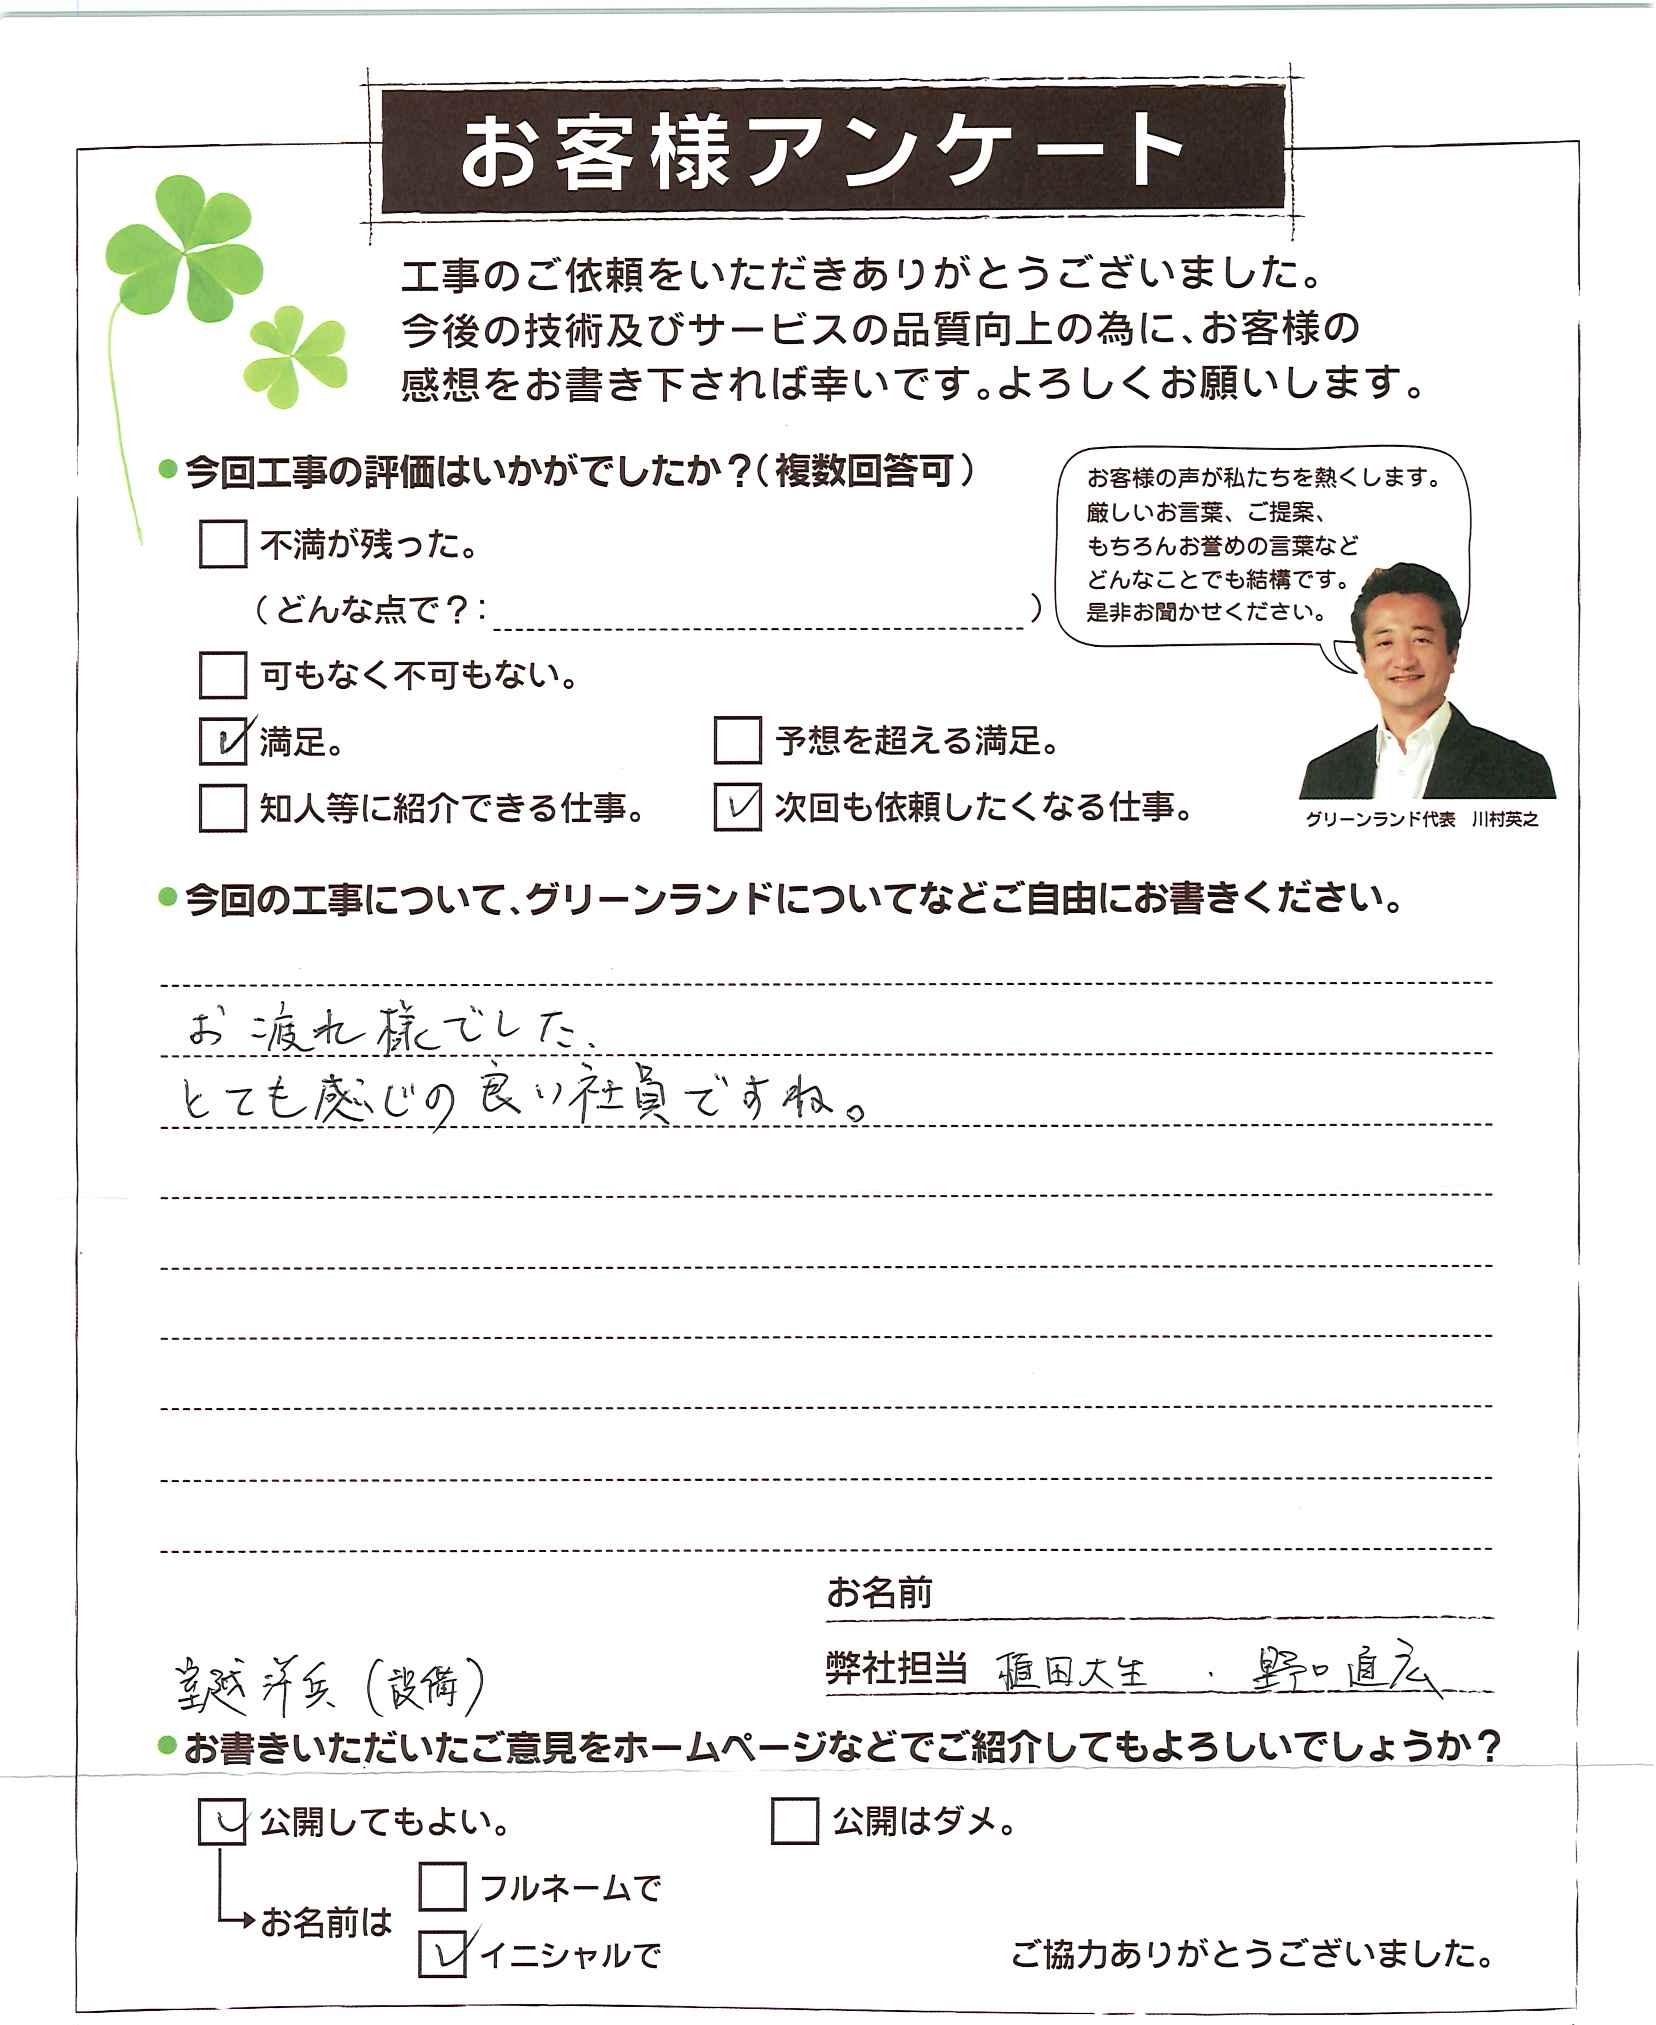 お客様アンケート
工事のご依頼をいただきありがとうございました。
今後の技術及びサービスの品質向上の為に、お客様の
感想をお書き下されば幸いです。よろしくお願いします。
●今回工事の評価はいかがでしたか？(複数回答可)
不満が残った。
(どんな点で？: )
可もなく不可もない。
満足。
予想を超える満足。
知人等に紹介できる仕事。
次回も依頼したくなる仕事。
お客様の声が私たちを熱くします。
厳しいお言葉、ご提案、
もちろんお誉めの言葉など
どんなことでも結構です。
是非お聞かせください。
グリーンランド代表 川村英之
●今回の工事について、グリーンランドについてなどご自由にお書きください。
お疲れ様でした、
とても感じの良い社員ですね。
お名前
弊社担当 植田大生 . 野口直広
室越洋兵(設備)
●お書きいただいたご意見をホームページなどでご紹介してもよろしいでしょうか？
公開してもよい。
公開はダメ。
お名前は
フルネームで
イニシャルで
ご協力ありがとうございました。